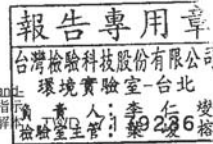 報告專用章
台灣檢驗科技股份有限公司
環境實驗室-台北
負責人:李仁
檢驗室主管:葉
and
TWD 7119236